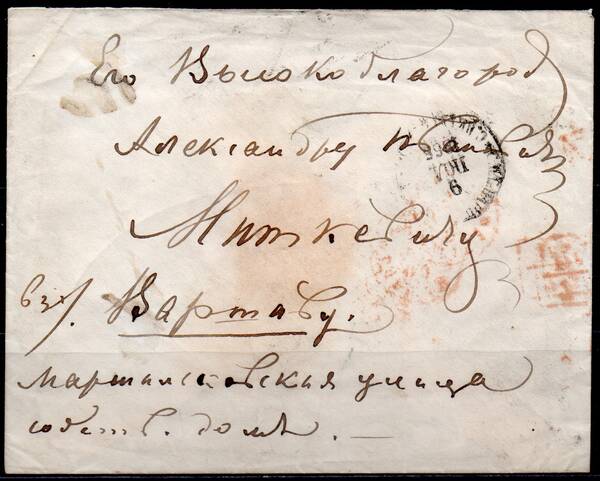 Его Высокоблагород
Александру Ивановичу
Миткевичу
въ / Варшаву.
Маршалковская улица
собств. домъ. —
9
ІЮЛ
1865